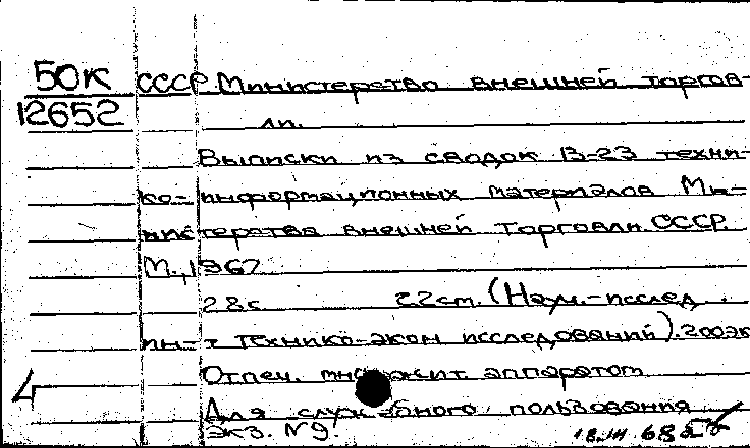 50К СССР Министерство внешней торгов-
12652 ли.
Выписки из сводок В-23 техни-
ко-информационных материалов Ми-
нистерства внешней торговли СССР.
М., 1967
28с 22см. (Науч.-исслед
ин-т технико-экон исследований). 200эк
Отпеч. множит. аппаратом
4
Для служебного пользования
Экз. №9.